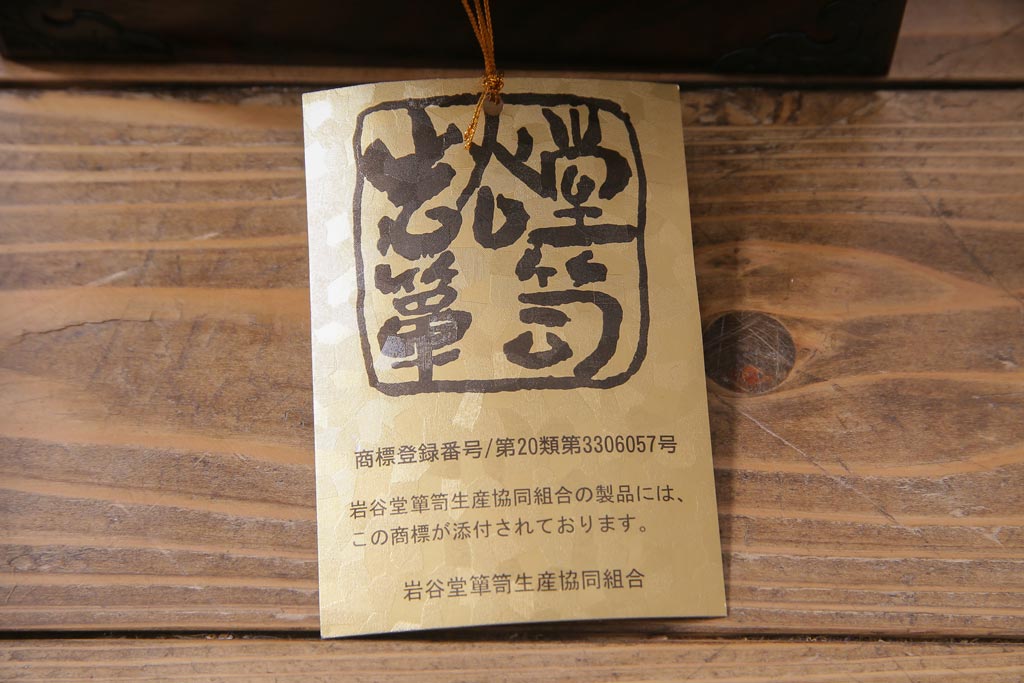 岩谷堂
箪笥
商標登録番号/第20類第3306057号
岩谷堂箪笥生産協同組合の製品には、
この商標が添付されております。
岩谷堂箪笥生産協同組合